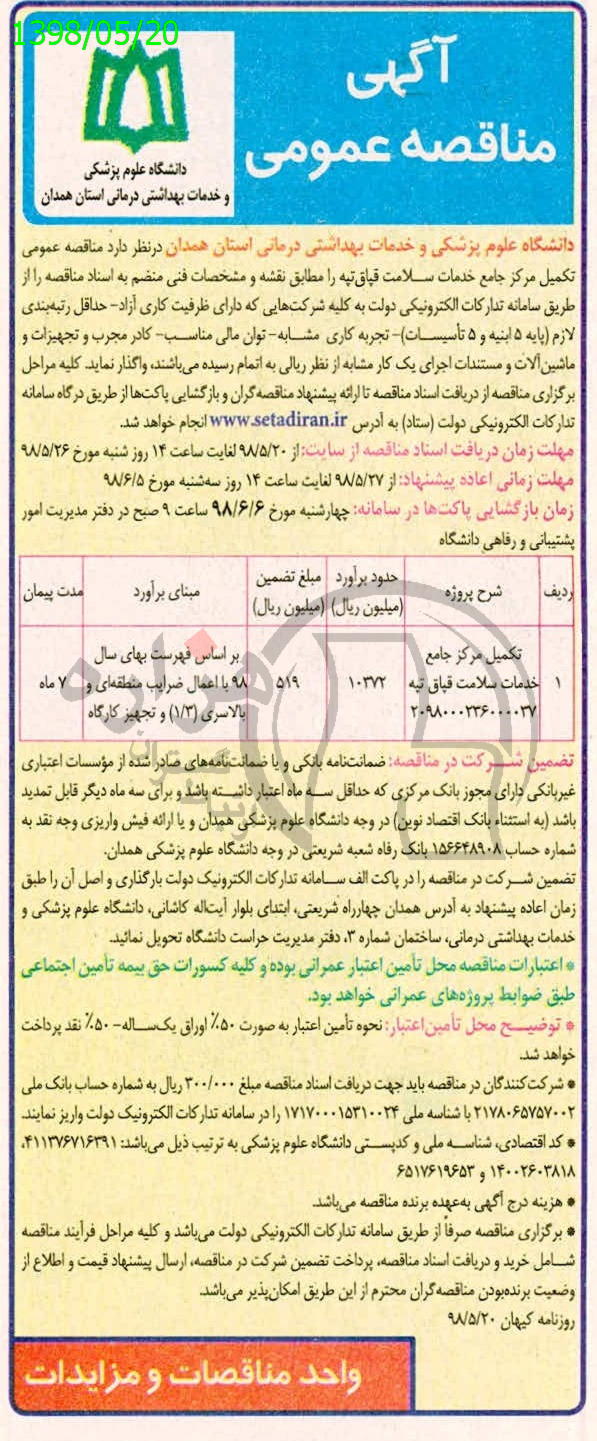 1398/05/20
آگهی
مناقصه عمومی
دانشگاه علوم پزشکی
و خدمات بهداشتی درمانی استان همدان
دانشگاه علوم پزشکی و خدمات بهداشتی درمانی استان همدان درنظر دارد مناقصه عمومی
تکمیل مرکز جامع خدمات سلامت قباق‌تپه را مطابق نقشه و مشخصات فنی منضم به اسناد مناقصه را از
طریق سامانه تدارکات الکترونیکی دولت به کلیه شرکت‌هایی که دارای ظرفیت کاری آزاد- حداقل رتبه‌بندی
لازم (پایه ۵ ابنیه و ۵ تأسیسات)- تجربه کاری مشابه- توان مالی مناسب- کادر مجرب و تجهیزات و
ماشین‌آلات و مستندات اجرای یک کار مشابه از نظر ریالی به اتمام رسیده می‌باشند، واگذار نماید. کلیه مراحل
برگزاری مناقصه از دریافت اسناد مناقصه تا ارائه پیشنهاد مناقصه‌گران و بازگشایی پاکت‌ها از طریق درگاه سامانه
تدارکات الکترونیکی دولت (ستاد) به آدرس www.setadiran.ir انجام خواهد شد.
مهلت زمان دریافت اسناد مناقصه از سایت: از ۹۸/۵/۲۰ لغایت ساعت ۱۴ روز شنبه مورخ ۹۸/۵/۲۶
مهلت زمانی اعاده پیشنهاد: از ۹۸/۵/۲۷ لغایت ساعت ۱۴ روز سه‌شنبه مورخ ۹۸/۶/۵
زمان بازگشایی پاکت‌ها در سامانه: چهارشنبه مورخ ۹۸/۶/۶ ساعت ۹ صبح در دفتر مدیریت امور
پشتیبانی و رفاهی دانشگاه
ردیف شرح پروژه حدود برآورد (میلیون ریال) مبلغ تضمین (میلیون ریال) مبنای برآورد مدت پیمان
تکمیل مرکز جامع بر اساس فهرست بهای سال
۱ خدمات سلامت قباق تپه ۱۰۳۷۲ ۵۱۹ ۹۸ با اعمال ضرایب منطقه‌ای و ۷ ماه
۲۰۹۸۰۰۰۲۳۶۰۰۰۰۳۷ بالاسری (۱/۳) و تجهیز کارگاه
تضمین شرکت در مناقصه: ضمانت‌نامه بانکی و یا ضمانت‌نامه‌های صادر شده از مؤسسات اعتباری
غیربانکی دارای مجوز بانک مرکزی که حداقل سه ماه اعتبار داشته باشد و برای سه ماه دیگر قابل تمدید
باشد (به استثناء بانک اقتصاد نوین) در وجه دانشگاه علوم پزشکی همدان و یا ارائه فیش واریزی وجه نقد به
شماره حساب ۱۵۶۶۴۸۹۰۸ بانک رفاه شعبه شریعتی در وجه دانشگاه علوم پزشکی همدان.
تضمین شرکت در مناقصه را در پاکت الف سامانه تدارکات الکترونیک دولت بارگذاری و اصل آن را طبق
زمان اعاده پیشنهاد به آدرس همدان چهارراه شریعتی، ابتدای بلوار آیت‌اله کاشانی، دانشگاه علوم پزشکی و
خدمات بهداشتی درمانی، ساختمان شماره ۳، دفتر مدیریت حراست دانشگاه تحویل نمائید.
* اعتبارات مناقصه محل تأمین اعتبار عمرانی بوده و کلیه کسورات حق بیمه تأمین اجتماعی
طبق ضوابط پروژه‌های عمرانی خواهد بود.
* توضیح محل تأمین‌اعتبار: نحوه تأمین اعتبار به صورت ۵۰٪ اوراق یک‌ساله- ۵۰٪ نقد پرداخت
خواهد شد.
* شرکت‌کنندگان در مناقصه باید جهت دریافت اسناد مناقصه مبلغ ۳۰۰/۰۰۰ ریال به شماره حساب بانک ملی
۲۱۷۸۰۶۵۷۵۷۰۰۲ با شناسه ملی ۱۷۱۷۰۰۰۱۵۳۱۰۰۲۴ را در سامانه تدارکات الکترونیک دولت واریز نمایند.
* کد اقتصادی، شناسه ملی و کدپستی دانشگاه علوم پزشکی به ترتیب ذیل می‌باشد: ۴۱۱۳۷۶۷۱۶۳۹۱،
۱۴۰۰۲۶۰۳۸۱۸ و ۶۵۱۷۶۱۹۶۵۳
* هزینه درج آگهی به‌عهده برنده مناقصه می‌باشد.
* برگزاری مناقصه صرفاً از طریق سامانه تدارکات الکترونیکی دولت می‌باشد و کلیه مراحل فرآیند مناقصه
شامل خرید و دریافت اسناد مناقصه، پرداخت تضمین شرکت در مناقصه، ارسال پیشنهاد قیمت و اطلاع از
وضعیت برنده‌بودن مناقصه‌گران محترم از این طریق امکان‌پذیر می‌باشد.
روزنامه کیهان ۹۸/۵/۲۰
واحد مناقصات و مزایدات